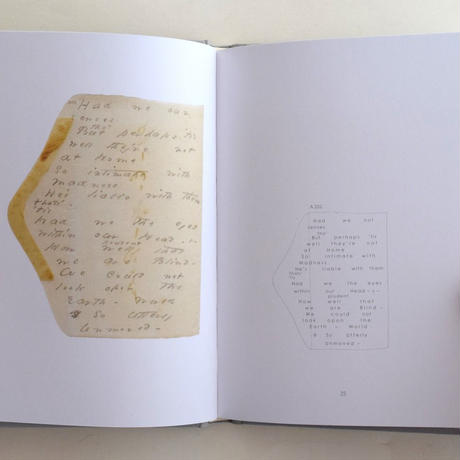 Had we our
senses
tho'
But perhaps 'tis
well they're not
at Home
So intimate with
Madness
He's liable with them
that's
'tis
Had we the eyes
within our Head -
prudent
How well that
we are Blind -
We could not
look opon the
Earth -
So utterly
unmoved -
Had we
senses
tho'
But perhaps 'tis
well they're not
at Home
So intimate with
Madness
He's liable with them
that's
'tis
Had we the eyes
within our Head - s -
prudent
How well that
we are Blind -
We could not
look opon the
Earth - World -
So utterly
unmoved -
25